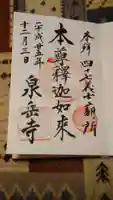 本縣四十七義士霊所
本尊釋迦如来
平成廿五年
十二月三日
泉岳寺